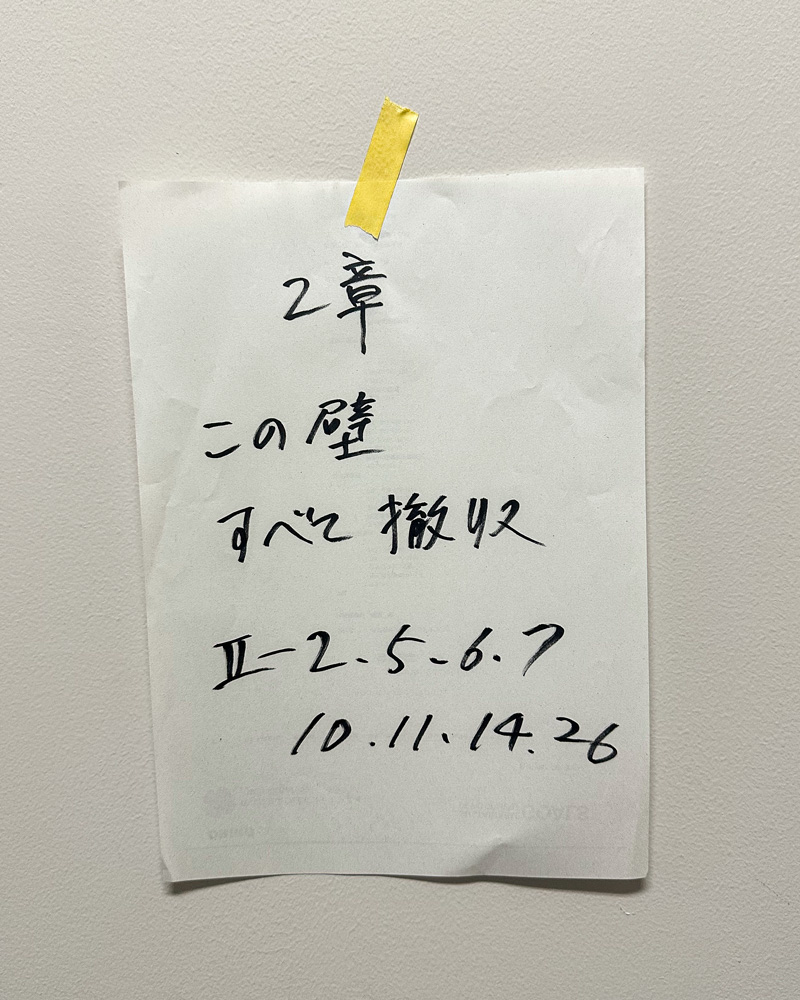 2章
この壁
すべて撤収
Ⅱ-2.5.6.7
10.11.14.26